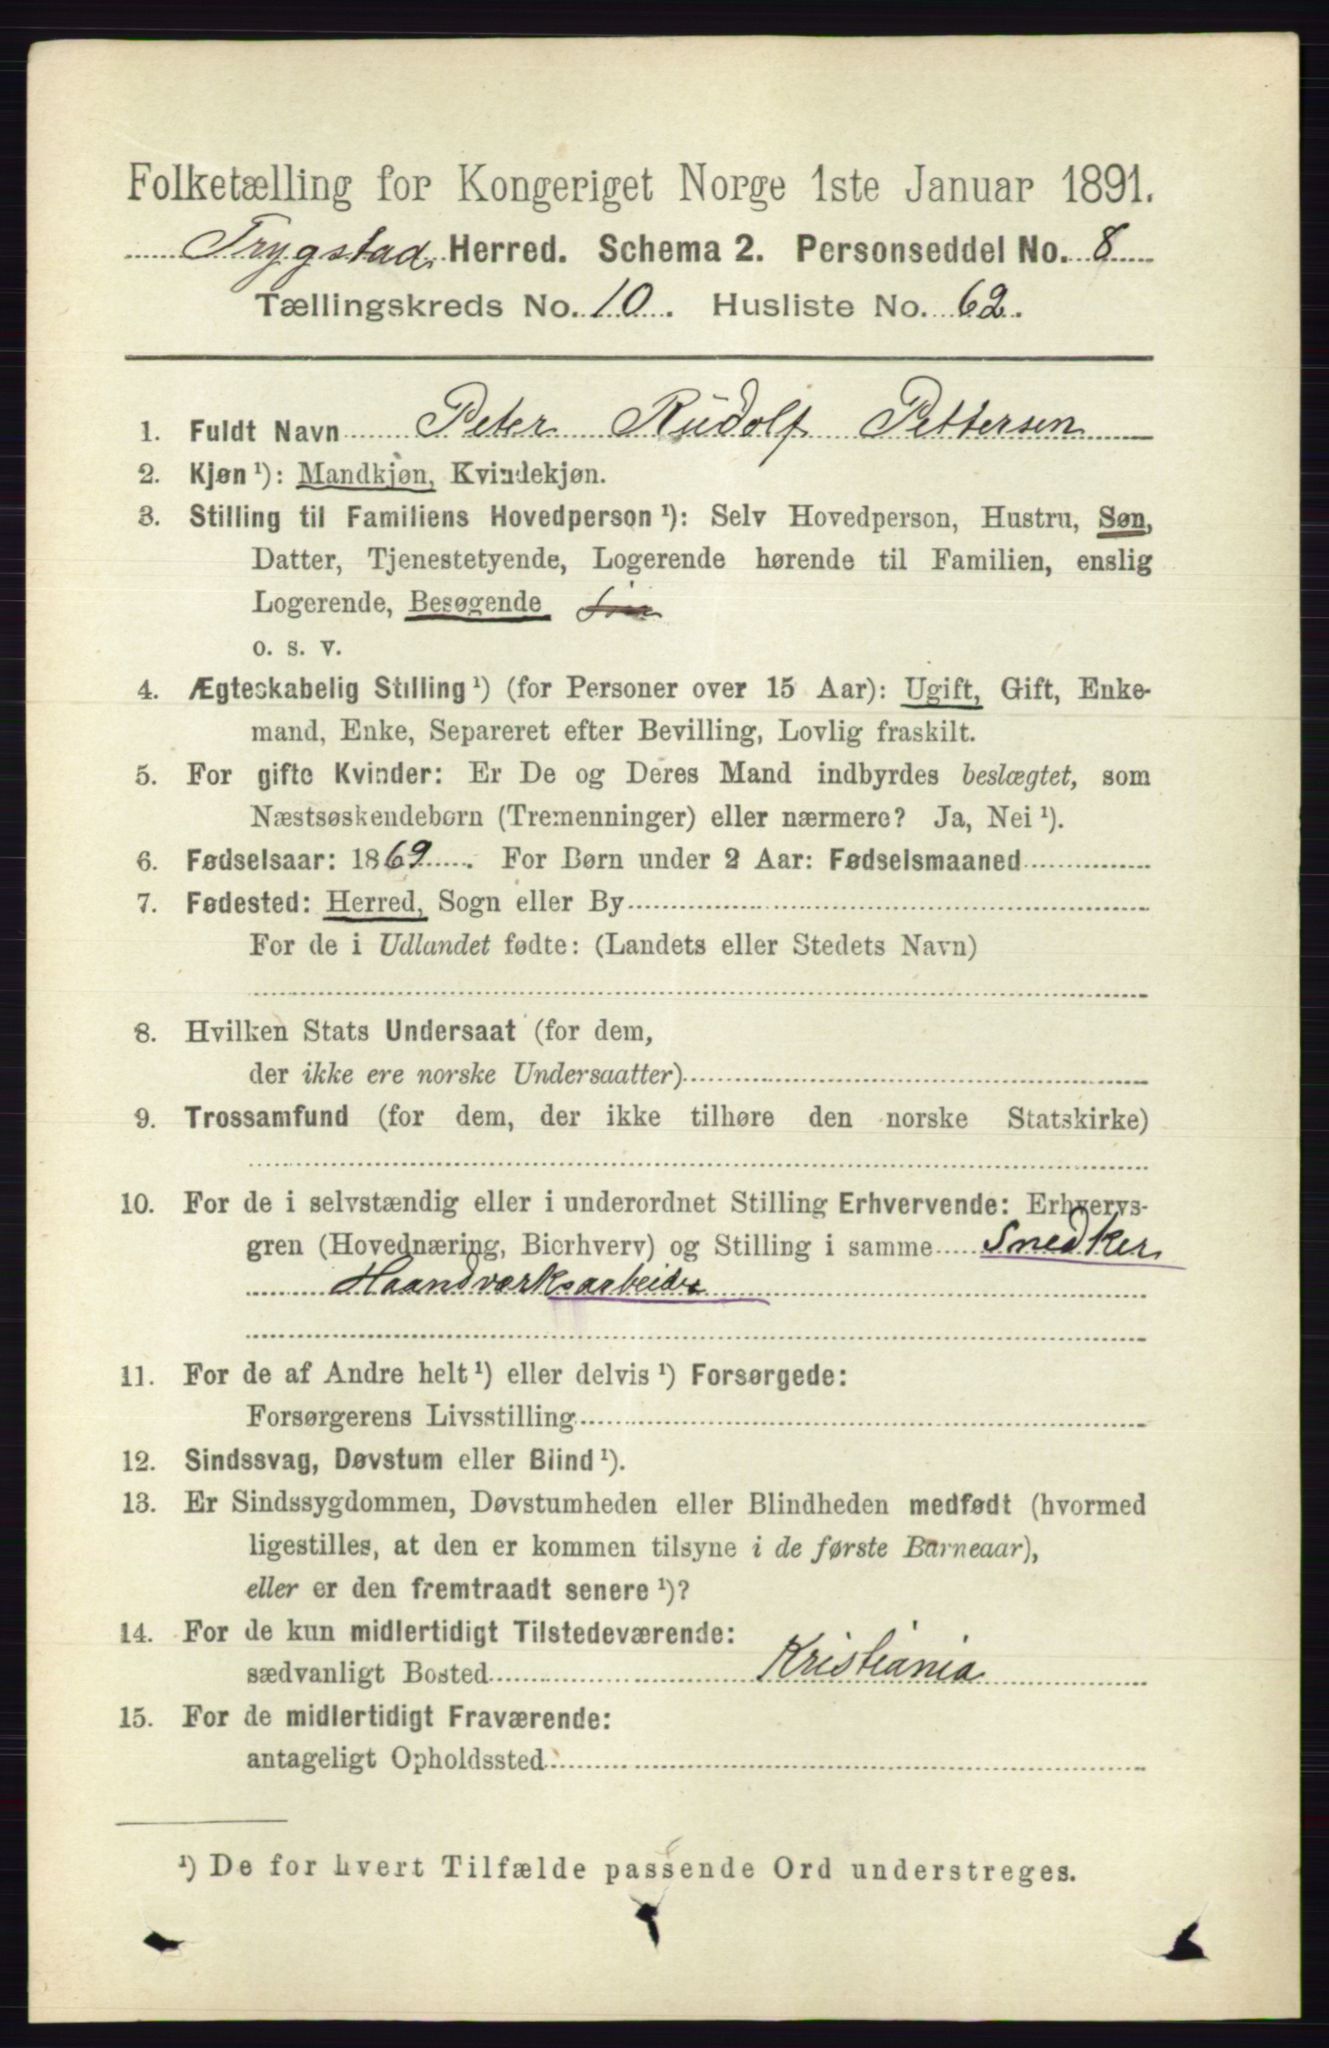 Folketælling for Kongeriget Norge 1ste Januar 1891.
Trygstad Herred. Schema 2. Personseddel No. 8
Tællingskreds No. 10. Husliste No. 62.
1. Fuldt Navn Peter Rudolf Pettersen
2. Kjøn ¹): Mandkjøn, Kvindekjøn.
3. Stilling til Familiens Hovedperson ¹): Selv Hovedperson, Hustru, Søn,
Datter, Tjenestetyende, Logerende hørende til Familien, enslig
Logerende, Besøgende
o. s. v.
4. Ægteskabelig Stilling ¹) (for Personer over 15 Aar): Ugift, Gift, Enke-
mand, Enke, Separeret efter Bevilling, Lovlig fraskilt.
5. For gifte Kvinder: Er De og Deres Mand indbyrdes beslægtet, som
Næstsøskendebørn (Tremenninger) eller nærmere? Ja, Nei ¹).
6. Fødselsaar: 1869. For Børn under 2 Aar: Fødselsmaaned
7. Fødested: Herred, Sogn eller By
For de i Udlandet fødte: (Landets eller Stedets Navn)
8. Hvilken Stats Undersaat (for dem,
der ikke ere norske Undersaatter)
9. Trossamfund (for dem, der ikke tilhøre den norske Statskirke)
10. For de i selvstændig eller i underordnet Stilling Erhvervende: Erhvervs-
gren (Hovednæring, Bierhverv) og Stilling i samme Snedker
Haandværksarbeider
11. For de af Andre helt ¹) eller delvis ¹) Forsørgede:
Forsørgerens Livsstilling
12. Sindssvag, Døvstum eller Blind ¹).
13. Er Sindssygdommen, Døvstumheden eller Blindheden medfødt (hvormed
ligestilles, at den er kommen tilsyne i de første Barneaar),
eller er den fremtraadt senere ¹)?
14. For de kun midlertidigt Tilstedeværende:
sædvanligt Bosted Kristiania
15. For de midlertidigt Fraværende:
antageligt Opholdssted
¹) De for hvert Tilfælde passende Ord understreges.